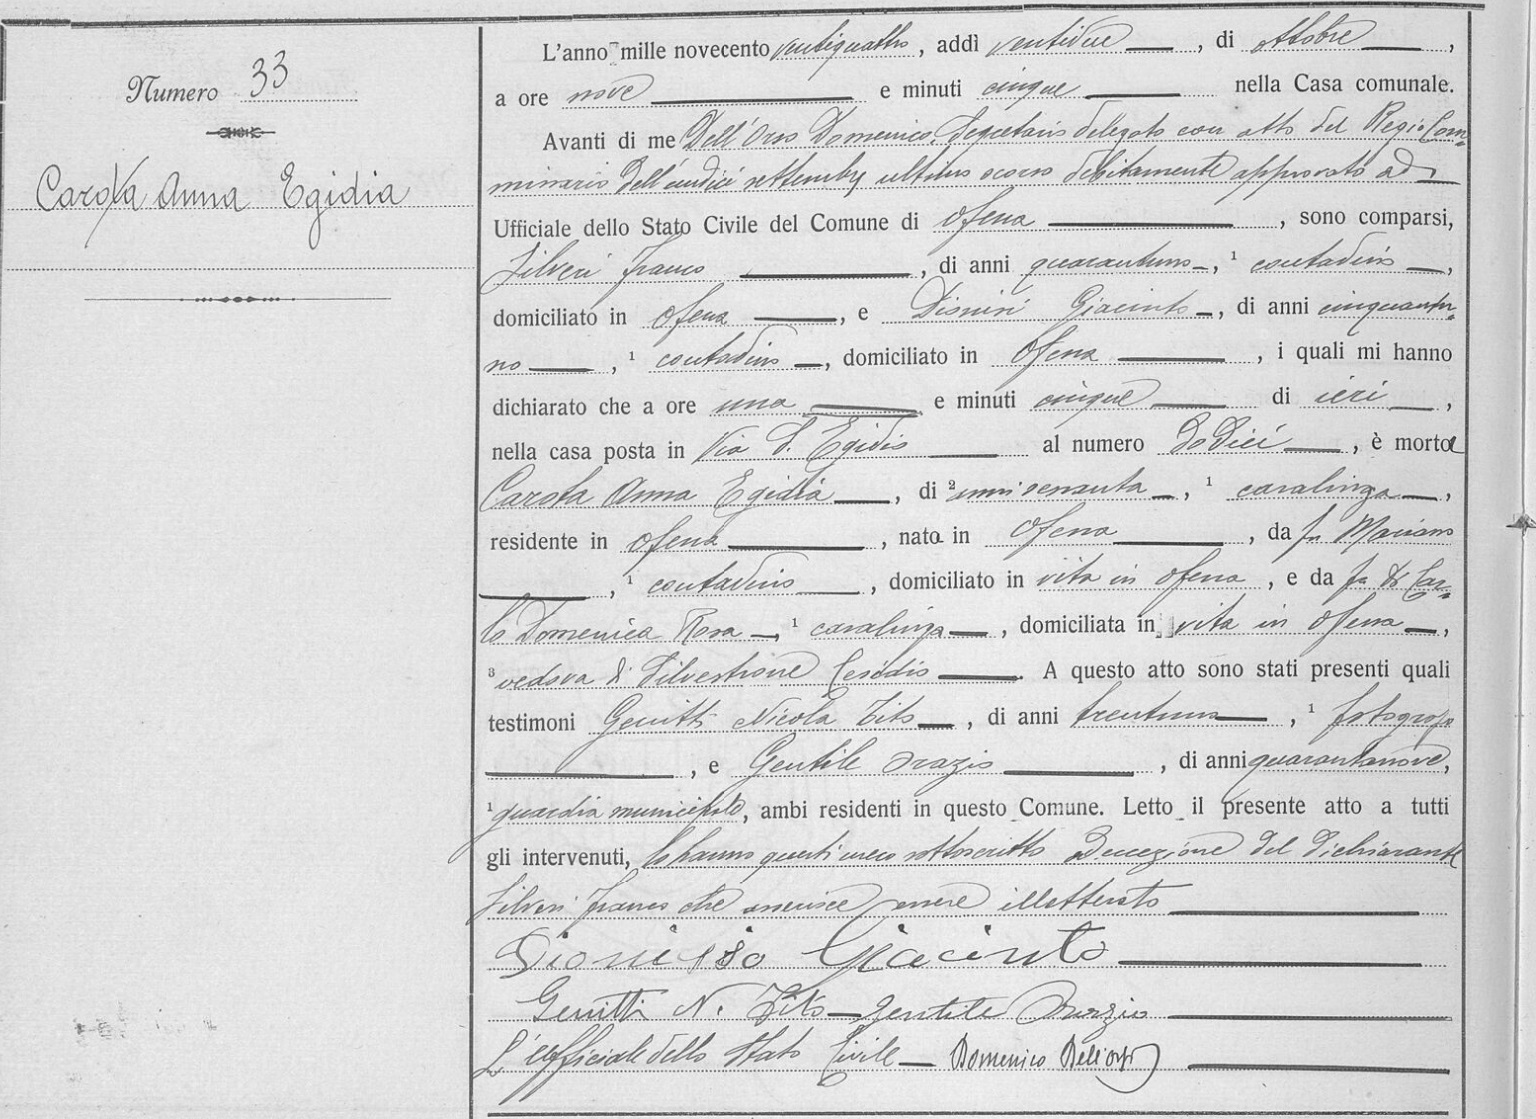 Numero 33
Carota Anna Egidia
L'anno mille novecento ventiquattro, addì ventidue, di ottobre,
a ore nove e minuti cinque nella Casa comunale.
Avanti di me Dell'Orso Domenico, Segretario delegato con atto del Regio Com-
missario dell'undici settembre ultimo scorso debitamente approvato ad
Ufficiale dello Stato Civile del Comune di Ofena, sono comparsi,
Silveri Franco, di anni quarantuno, ¹ contadino,
domiciliato in Ofena, e Dionisi Giacinto, di anni cinquantu-
no, ¹ contadino, domiciliato in Ofena, i quali mi hanno
dichiarato che a ore una e minuti cinque di ieri,
nella casa posta in Via S. Egidio al numero dodici, è morta
Carota Anna Egidia, di ² anni sessanta, ¹ casalinga,
residente in Ofena, nata in Ofena, da fu Mariano
, ¹ contadino, domiciliato in vita in Ofena, e da fu Di Car-
lo Domenica Rosa, ¹ casalinga, domiciliata in vita in Ofena,
³ vedova di Silvestrone Cesidio. A questo atto sono stati presenti quali
testimoni Genitti Nicola Tito, di anni trentuno, ¹ fotografo
, e Gentile Orazio, di anni quarantanove,
¹ guardia municipale, ambi residenti in questo Comune. Letto il presente atto a tutti
gli intervenuti, lo hanno questi meco sottoscritto ad eccezione del dichiarante
Silveri Franco che asserisce essere illetterato
Dionisio Giacinto
Genitti N. Tito - Gentile Orazio
L'ufficiale dello Stato Civile - Domenico Dell'Orso